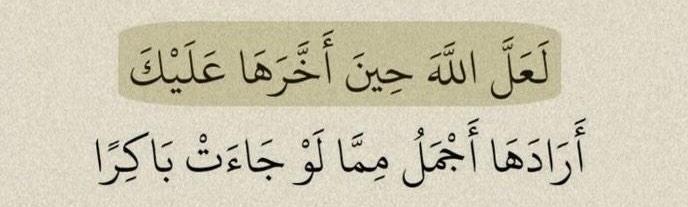 لَعَلَّ اللَّهَ حِينَ أَخَّرَهَا عَلَيْكَ
أَرَادَهَا أَجْمَلُ مِمَّا لَوْ جَاءَتْ بَاكِرًا